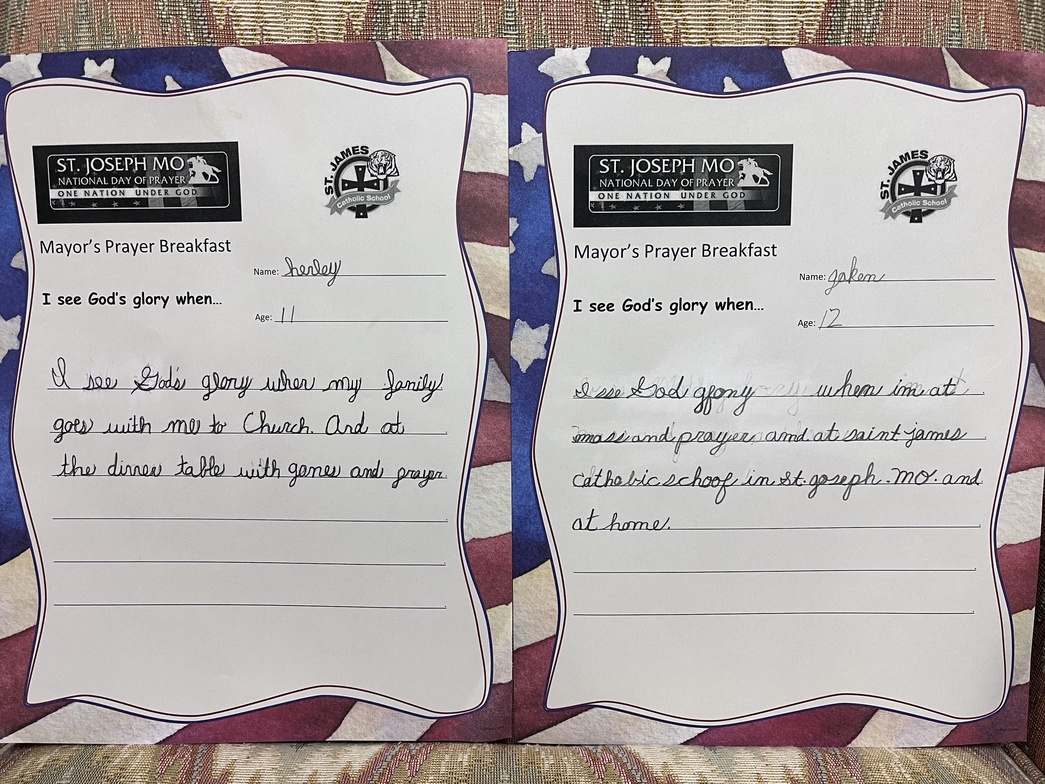 ST. JOSEPH MO
NATIONAL DAY OF PRAYER
ONE NATION UNDER GOD
ST. JAMES
Catholic School
Mayor's Prayer Breakfast
Name: herley
I see God's glory when...
Age: 11
I see God's glory when my family
goes with me to Church. And at
the dinner table with games and prayer.
ST. JOSEPH MO
NATIONAL DAY OF PRAYER
ONE NATION UNDER GOD
ST. JAMES
Catholic School
Mayor's Prayer Breakfast
Name: jaken
I see God's glory when...
Age: 12
I see God glory when im at
mass and prayer and at saint james
cathobic school in St. joseph. MO. and
at home.